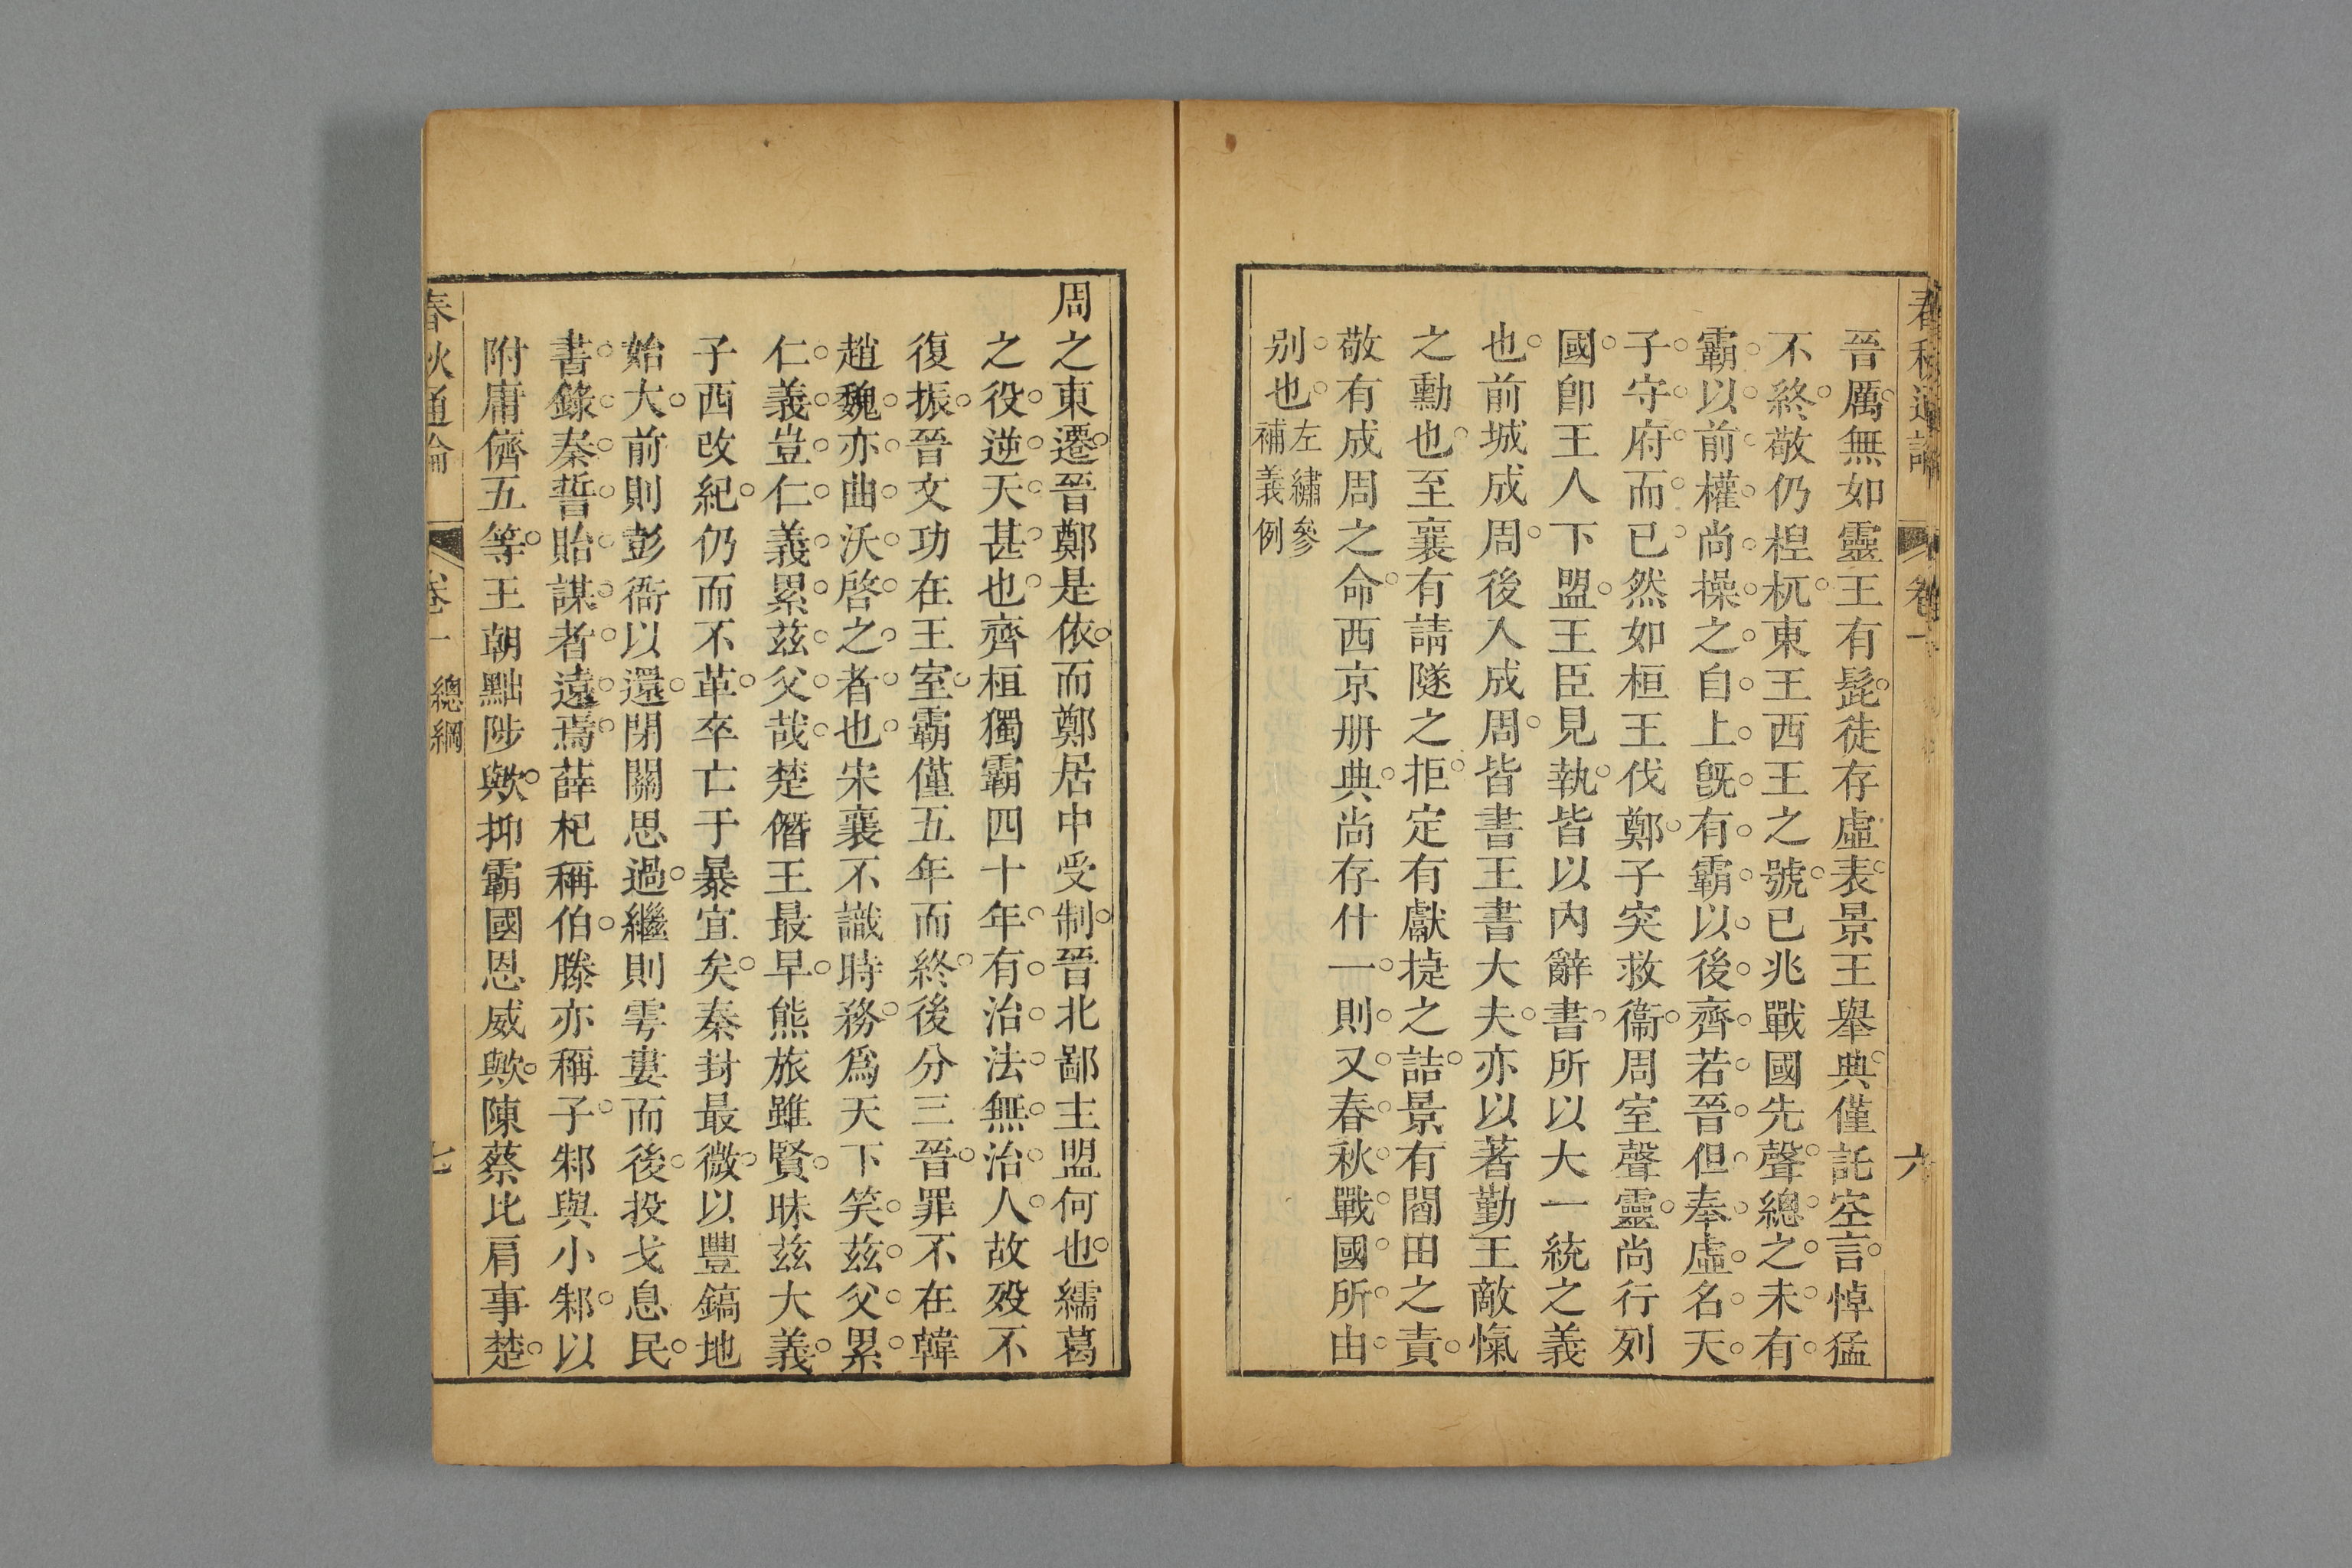 晉厲無如靈王有髭徒存虛表景王舉典僅託空言悼猛
不終敬仍桯杌東王西王之號已兆戰國先聲總之未有
霸以前權尚操之自上旣有霸以後齊若晉但奉虛名天
子守府而已然如桓王伐鄭子突救衞周室聲靈尚行列
國卽王人下盟王臣見執皆以內辭書所以大一統之義
也前城成周後入成周皆書王書大夫亦以著勤王敵愾
之勳也至襄有請隧之拒定有獻捷之詰景有閻田之責
敬有成周之命西京册典尚存什一則又春秋戰國所由
别也左繡參
補義例
周之東遷晉鄭是依而鄭居中受制晉北鄙主盟何也繻葛
之役逆天甚也齊桓獨霸四十年有治法無治人故歿不
復振晉文功在王室霸僅五年而終後分三晉罪不在韓
趙魏亦曲沃啓之者也宋襄不識時務爲天下笑茲父累
仁義豈仁義累茲父哉楚僭王最早熊旅雖賢昧茲大義
子西改紀仍而不革卒亡于暴宜矣秦封最微以豐鎬地
始大前則彭衙以還閉關思過繼則雩婁而後投戈息民
書錄秦誓貽謀者遠焉薛杞稱伯滕亦稱子邾與小邾以
附庸儕五等王朝黜陟歟抑霸國恩威歟陳蔡比肩事楚
春秋通論 卷一 總綱 七